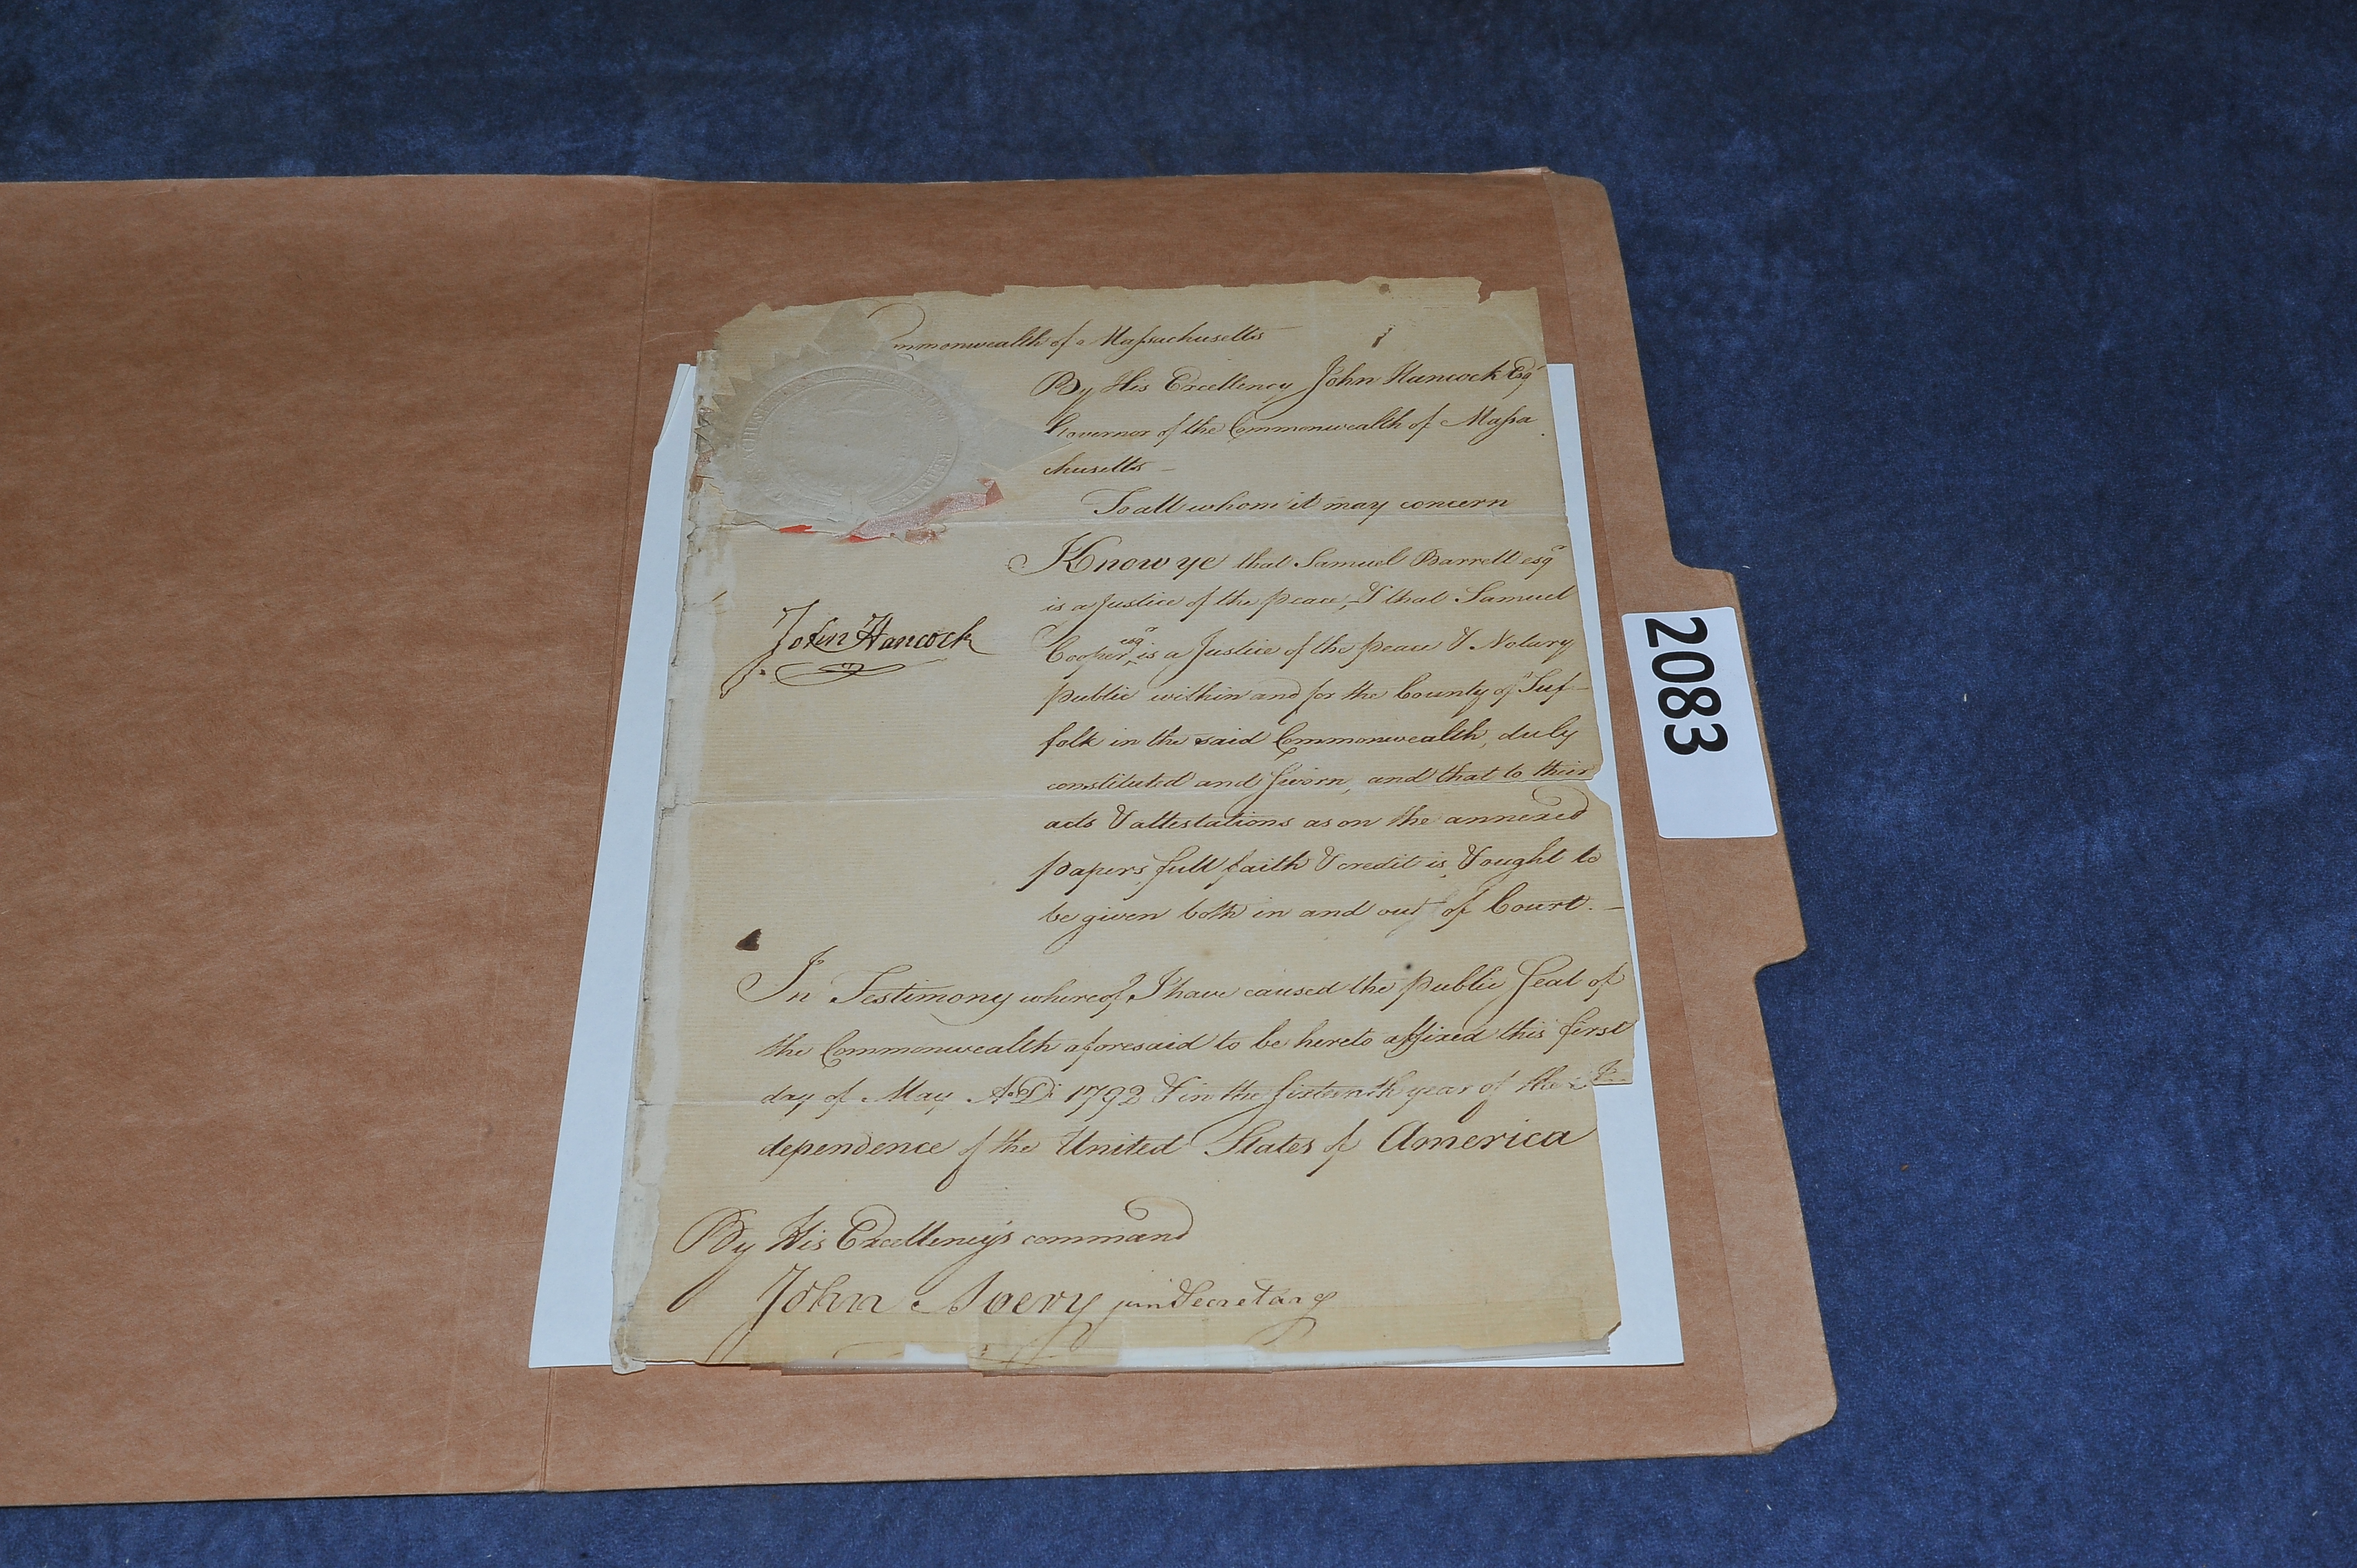 mmonwealth of Massachusetts
By His Excellency John Hancock Esqr
Governor of the Commonwealth of Massa
chusetts –
To all whom it may concern
Know ye that Samuel Barrett esqr
is a Justice of the peace, & that Samuel
Cooper esqr is a Justice of the peace & Notary
public within and for the County of Suf–
folk in the said Commonwealth, duly
constituted and sworn, and that to their
acts & attestations as on the annexed
papers, full faith & credit is, & ought to
be given both in and out of Court. –
John Hancock
In Testimony whereof, I have caused the public Seal of
the Commonwealth aforesaid to be hereto affixed this first
day of May A.D. 1792 & in the sixteenth year of the In
dependence of the United States of America
By His Excellency's command
John Avery junr Secretary
2083